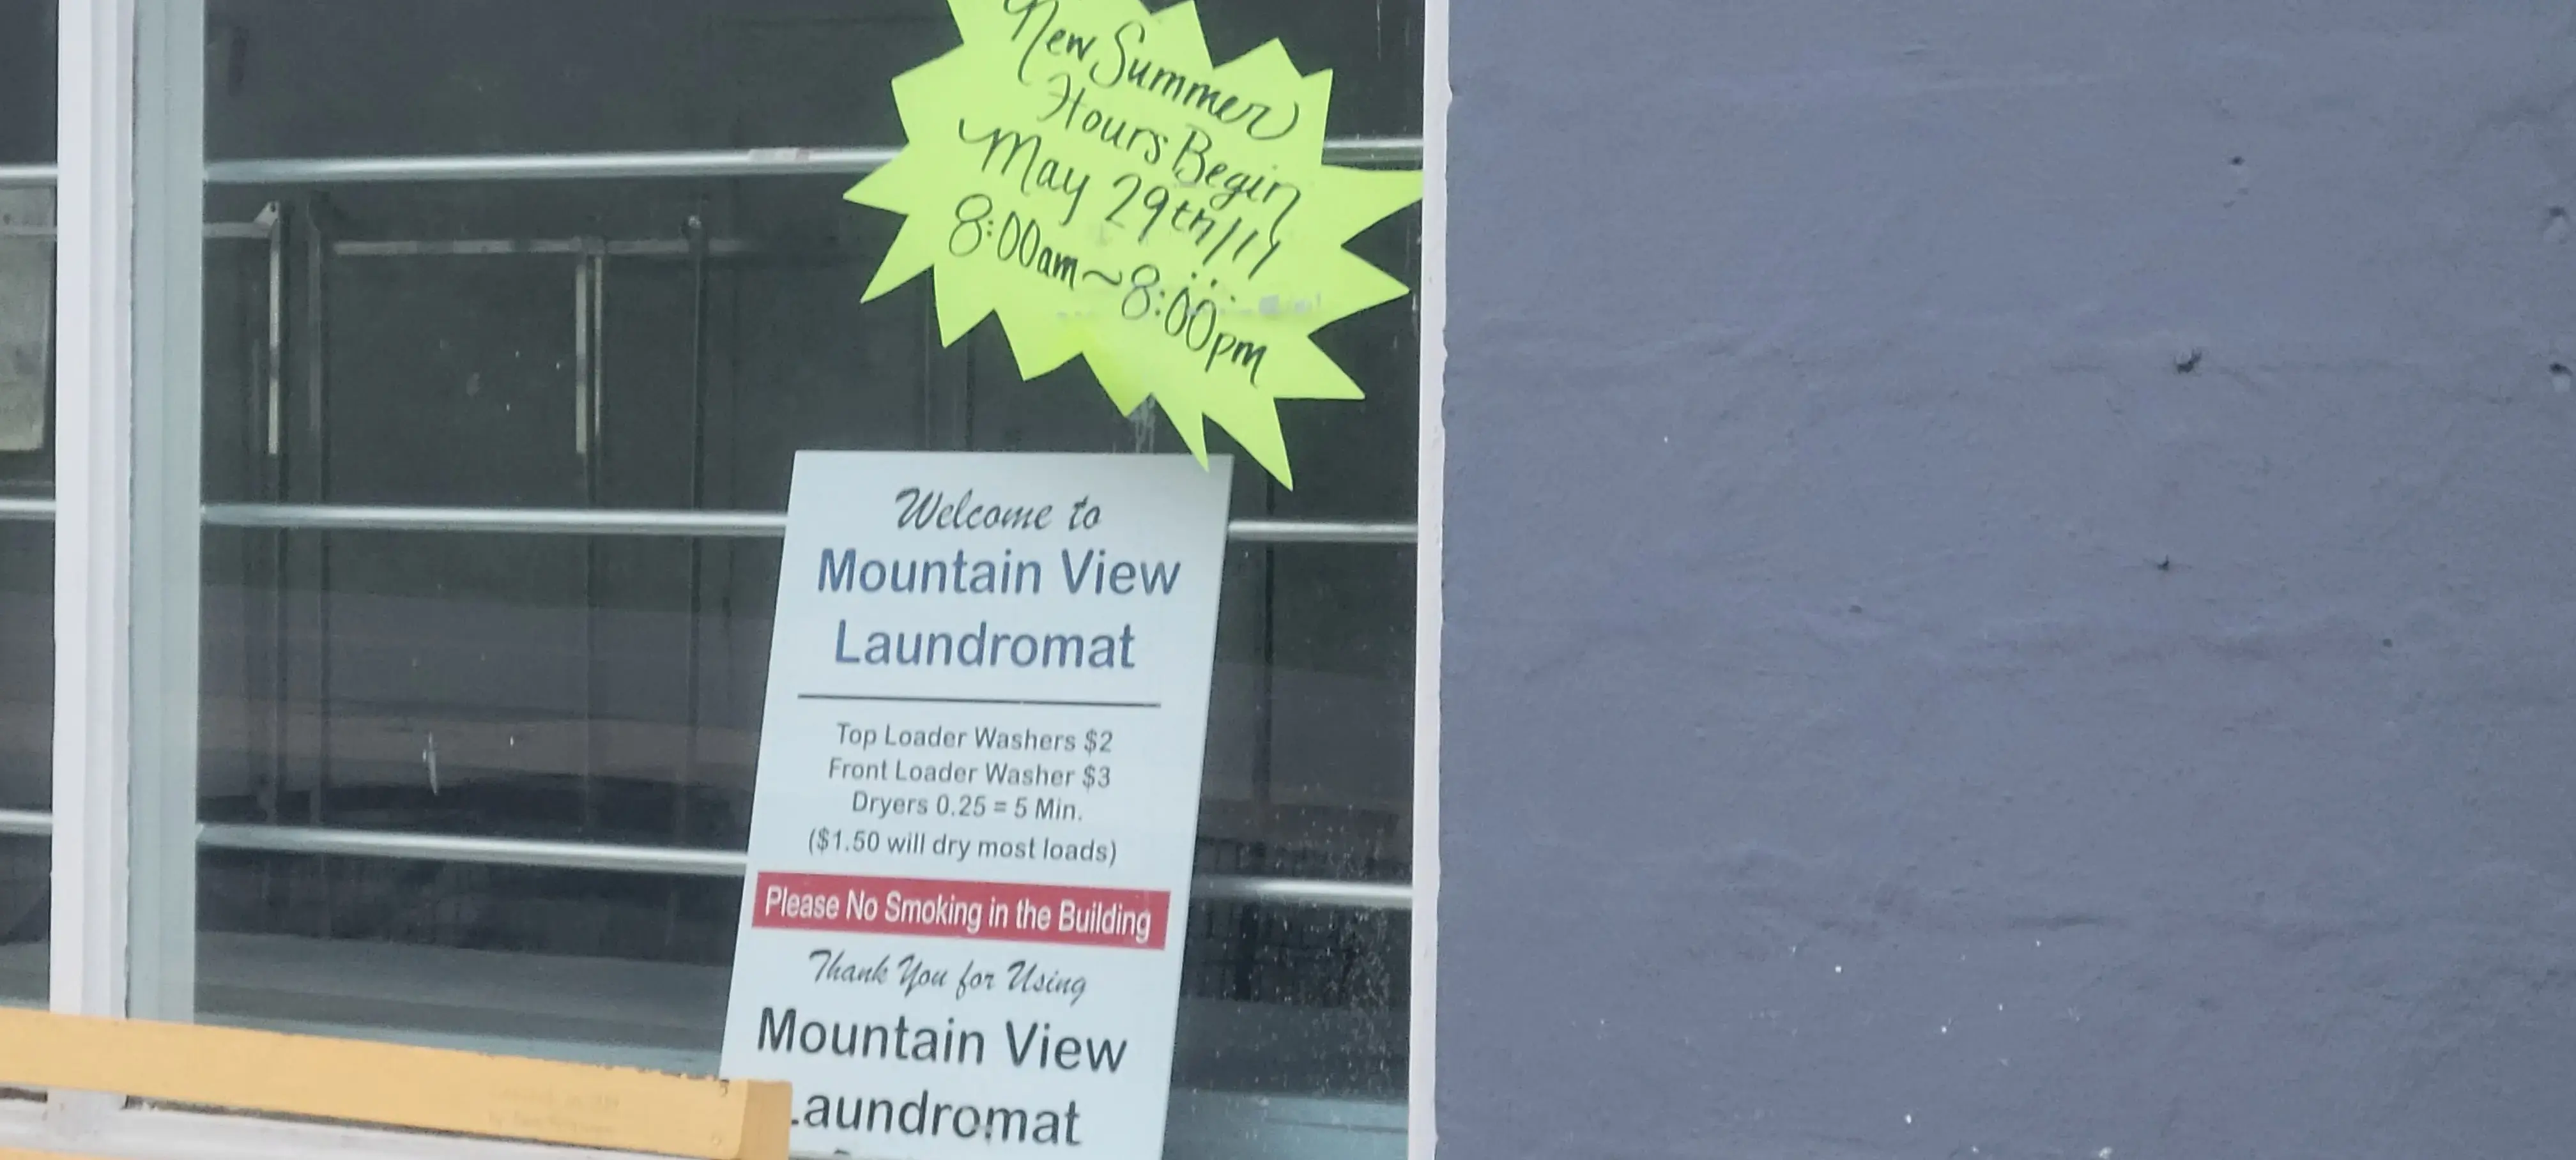 New Summer
Hours Begin
May 29th/17
8:00am~8:00pm
Welcome to
Mountain View
Laundromat
Top Loader Washers $2
Front Loader Washer $3
Dryers 0.25 = 5 Min.
($1.50 will dry most loads)
Please No Smoking in the Building
Thank You for Using
Mountain View
Laundromat